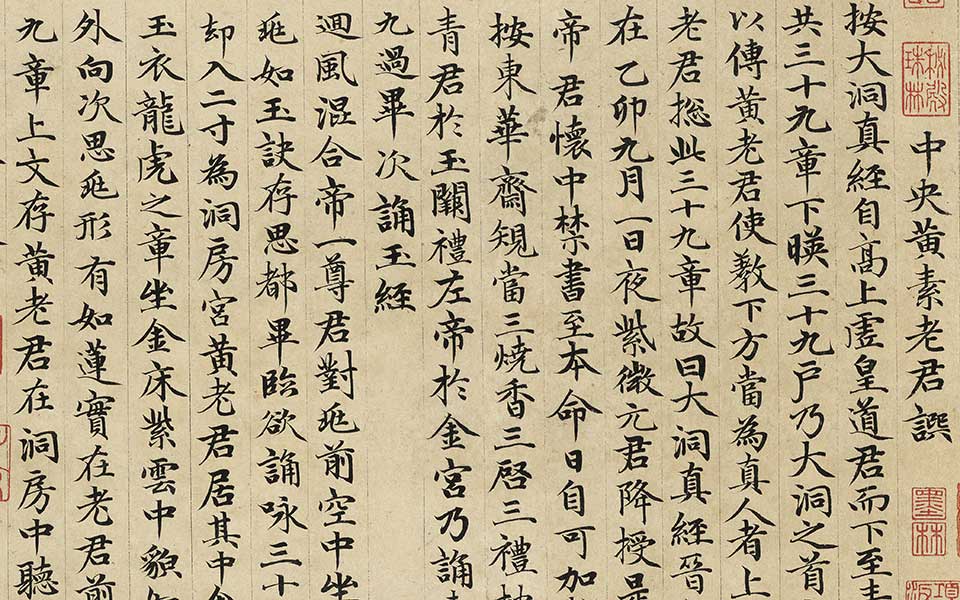 中央黃素老君譔
按大洞真經自高上虛皇道君而下至
共三十九章下暎三十九戶乃大洞之首
以傳黃老君使教下方當為真人者上
老君揔此三十九章故曰大洞真經晉
在乙卯九月一日夜紫微元君降授是
帝君懷中禁書至本命日自可加
按東華齋規當三燒香三啓三禮
青君於玉闕禮左帝於金宮乃誦
九過畢次誦玉經
迴風混合帝一尊君對兆前空中坐
兆如玉訣存思都畢臨欲誦咏三十
却入二寸為洞房宮黃老君居其中
玉衣龍虎之章坐金床紫雲中貌
外向次思兆形有如蓮實在老君前
九章上文存黃老君在洞房中聽
秘殿珠林
墨林